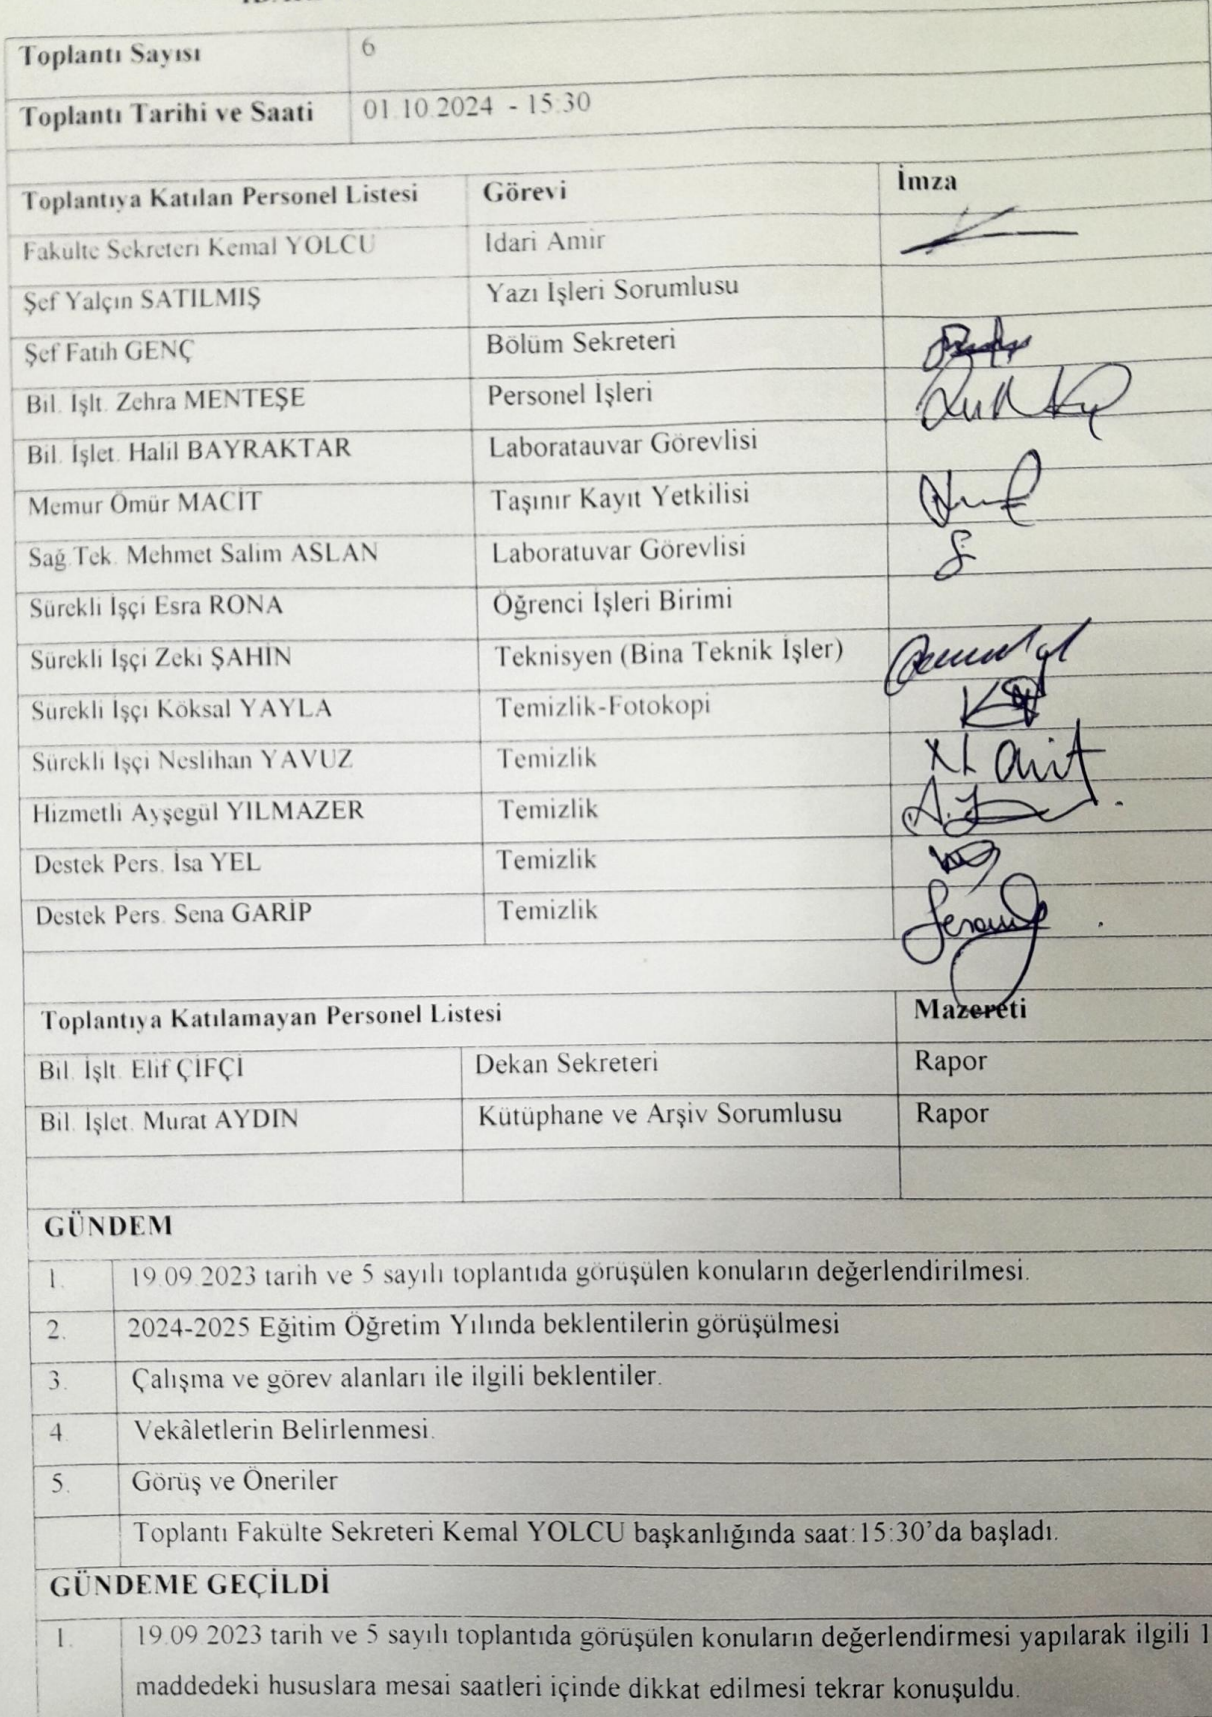 Toplantı Sayısı 6
Toplantı Tarihi ve Saati 01.10.2024 - 15:30
Toplantıya Katılan Personel Listesi Görevi İmza
Fakülte Sekreteri Kemal YOLCU İdari Amir
Şef Yalçın SATILMIŞ Yazı İşleri Sorumlusu
Şef Fatih GENÇ Bölüm Sekreteri
Bil. İşlt. Zehra MENTEŞE Personel İşleri
Bil. İşlet. Halil BAYRAKTAR Laboratauvar Görevlisi
Memur Ömür MACİT Taşınır Kayıt Yetkilisi
Sağ.Tek. Mehmet Salim ASLAN Laboratuvar Görevlisi
Sürekli İşçi Esra RONA Öğrenci İşleri Birimi
Sürekli İşçi Zeki ŞAHİN Teknisyen (Bina Teknik İşler)
Sürekli İşçi Köksal YAYLA Temizlik-Fotokopi
Sürekli İşçi Neslihan YAVUZ Temizlik
Hizmetli Ayşegül YILMAZER Temizlik
Destek Pers. İsa YEL Temizlik
Destek Pers. Sena GARİP Temizlik
Toplantıya Katılamayan Personel Listesi Mazereti
Bil. İşlt. Elif ÇİFÇİ Dekan Sekreteri Rapor
Bil. İşlet. Murat AYDIN Kütüphane ve Arşiv Sorumlusu Rapor
GÜNDEM
1. 19.09.2023 tarih ve 5 sayılı toplantıda görüşülen konuların değerlendirilmesi.
2. 2024-2025 Eğitim Öğretim Yılında beklentilerin görüşülmesi
3. Çalışma ve görev alanları ile ilgili beklentiler.
4. Vekâletlerin Belirlenmesi.
5. Görüş ve Öneriler
Toplantı Fakülte Sekreteri Kemal YOLCU başkanlığında saat:15:30'da başladı.
GÜNDEME GEÇİLDİ
1. 19.09.2023 tarih ve 5 sayılı toplantıda görüşülen konuların değerlendirmesi yapılarak ilgili 1
maddedeki hususlara mesai saatleri içinde dikkat edilmesi tekrar konuşuldu.